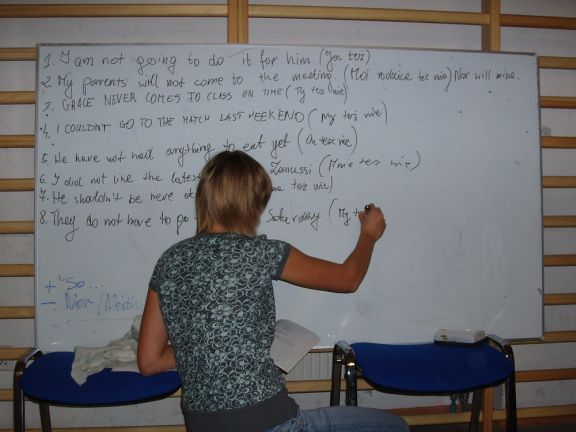 1. I am not going to do it for him (You też)
2. My parents will not come to the meeting. (Moi rodzice też nie) Nor will mine.
3. GRACE NEVER COMES TO CLASS ON TIME (Ty też nie)
4. I COULDN'T GO TO THE MATCH LAST WEEKEND (My też nie)
5. We have not had anything to eat yet (On też nie)
6. I did not like the latest Zanussi (Mnie też nie)
7. He shouldn't be here też nie)
8. They do not have to go Saturday (My też
+ So...
- Nor / Neith